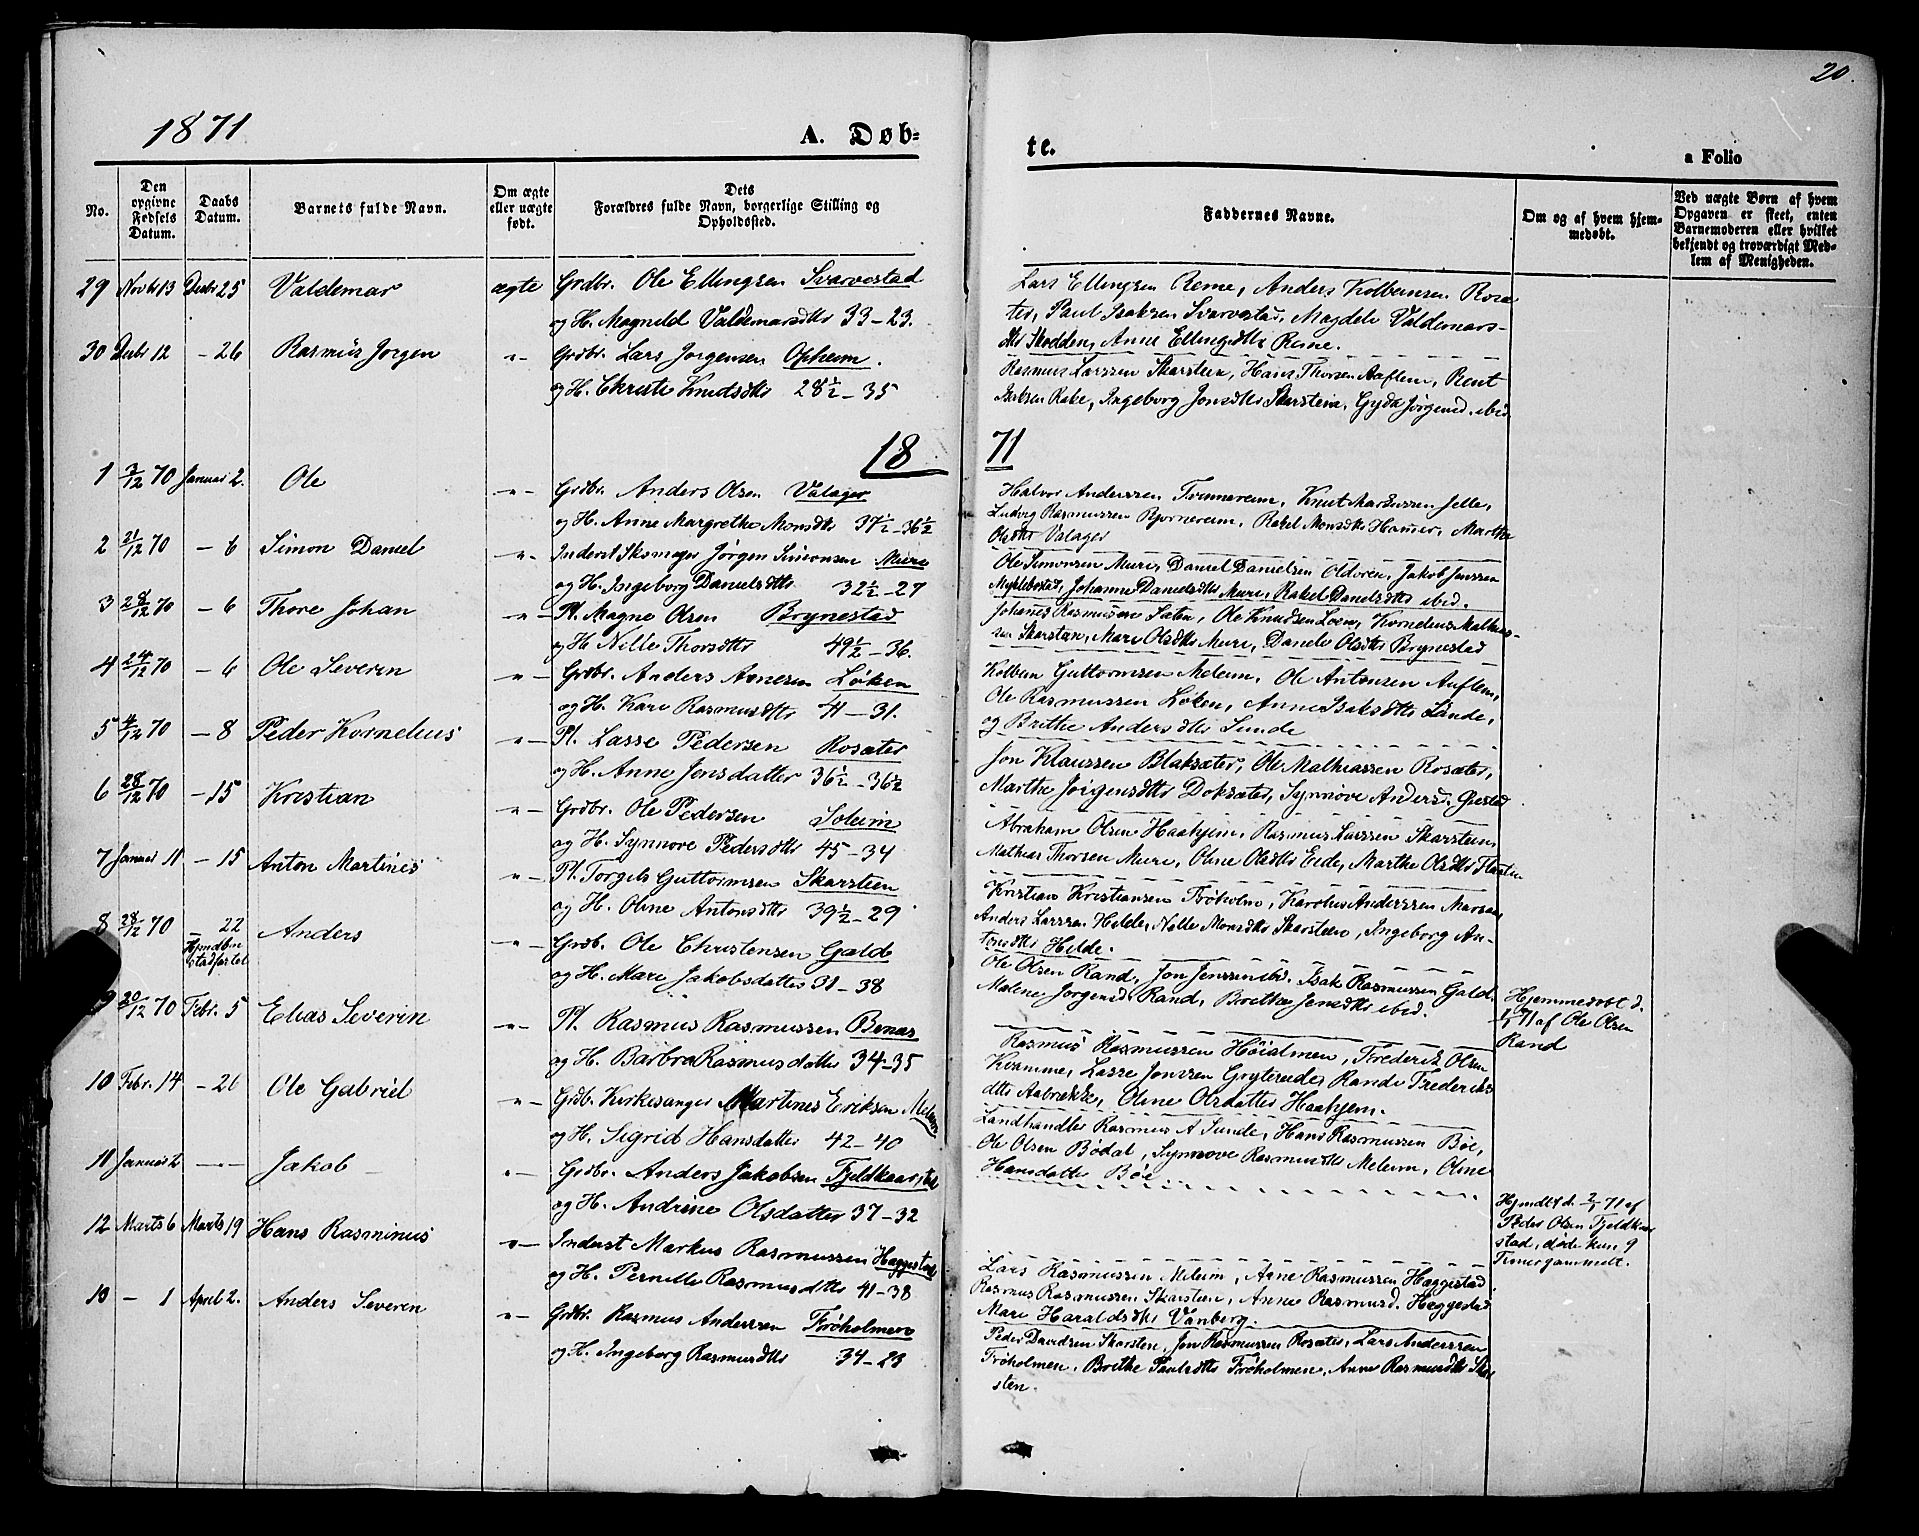 20.
1871
A. Døb-
te.
a Folio
No.
Den opgivne Fødsels Datum.
Daabs Datum.
Barnets fulde Navn.
Om ægte eller uægte født.
Dets Forældres fulde Navn, borgerlige Stilling og Opholdssted.
Faddernes Navne.
Om og af hvem hjemmedøbt.
Ved uægte Børn af hvem Opgaven er skeet, enten Barnemoderen eller hvilket bekjendt og troværdigt Medlem af Menigheden.
29 Novbr 13 Decbr 25 Valdemar ægte Grdbr. Ole Ellingsen Svarvestad
og H. Magnild Valdemarsdtts 33-23.
Lars Ellingsen Reme, Anders Kolbeinsen Rosæ
ter, Paul Isaksen Svarvestad, Magdeli Valdemars-
dtts Skodden, Anne Ellingsdtts Reme.
30 Decbr 12 - 26 Rasmus Jørgen -"- Grdbr. Lars Jørgensen Opheim.
og H. Chrate Knudsdtts 28½-35
Rasmus Larssen Skarstein, Hans Thorsen Aaflem, Bent
Rake, Ingeborg Jonsdtts Skarstein, Gyda Jørgensd. ibid.
1871
1 3/12 70 Januar 2. Ole -"- Grdbr. Anders Olsen Valager
og H. Anne Margrethe Monsdtts 37½-36½
Halvor Anderssen Tvinnereim, Knut Markussen Jelle,
Ludvig Rasmussen Bjørnereim, Rakel Monsdtts Hamar, Marthe
Olsdtts Valager
2 21/12 70 - 6 Simon Daniel -"- Inderst Skomager Jørgen Simonsen Muri
og H. Ingeborg Danielsdtts 32½-27
Ole Simonsen Muri, Daniel Danielsen Oldøren, Jakob Jenssen
Myklebostad, Johanne Danielsdtts Muri, Rakel Danielsdtts ibid.
3 28/12 70 - 6 Thore Johan -"- Pl. Magne Olsen Brynestad
og H. Nille Thorsdtts 49½-36.
Johannes Rasmussen Sæten, Ole Knudsen Loen, Kornelius Mathias-
sen Skarsten, Mari Olsdtts Muri, Danele Olsdtts Brynestad
4 24/12 70 - 6 Ole Severin -"- Grdbr. Anders Arnesen Løken
og H. Kari Rasmusdtts 41-31.
Kolbein Guttormsen Meleim, Ole Antonsen Auflem,
Ole Rasmussen Løken, Anne Isaksdtts Lunde,
og Brithe Andersdtts Sunde
5 4/12 70 - 8 Peder Kornelius -"- Pl. Lasse Pedersen Rosæter
og H. Anne Jonsdatter 36½-36½
Jon Klaussen Blaksæter, Ole Mathiassen Rosæter,
Marthe Jørgensdtts Doksæter, Synnøve Andersd. Gjestad
6 28/12 70 - 15 Kristian -"- Grdbr. Ole Pedersen Soleim
og H. Synnøve Pedersdtts 45-34
Abraham Olsen Haahjem, Rasmus Larssen Skarstein,
Mathias Thorsen Muri, Oline Olsdtts Eide, Marthe Olsdtts Flaaten
7 Januar 11 - 15 Anton Martines -"- Pl. Torgels Guttormsen Skarsteen
og H. Oline Antonsdtts 39½-29
Kristian Kristiansen Frøholm, Karolus Anderssen Marsaa
Anders Larssen Hilde, Nille Monsdtts Skarsteen, Ingeborg An-
tonsdtts Hilde.
8 28/12 70 - 22 Anders -"- Grdb. Ole Christensen Gald
og H. Mari Jakobsdatter 31-38
Ole Olsen Rand, Jon Jenssen ibid. Isak Rasmussen Gald,
Malene Jørgensd. Rand, Brithe Jensdtts ibid.
Hjemmedøbt d.
1/1 71 af Ole Olsen
Rand
9 20/12 70 Febr. 5 Elias Severin -"- Pl. Rasmus Rasmussen Bønas
og H. Barbra Rasmusdatter 34-35
Rasmus Rasmussen Høialmen, Frederik Olsen
Kvamme, Lasse Jonssen Gryterede, Randi Frederiks
dtts Aabrække, Oline Olsdatter Haahjem.
10 Febr. 14 - 26 Ole Gabriel -"- Grdb. Kirkesanger Martines Eriksen Meleim
og H. Sigrid Hansdatter 42-40
Landhandler Rasmus A Sunde, Hans Rasmussen Bøe,
Ole Olsen Bødal, Synnøve Rasmusdtts Meleim, Oline
Hansdatter Bøe
11 Januar 2 -"- Jakob -"- Grdbr. Anders Jakobsen Fjeldkaarstad
og H. Andrine Olsdatter 37-32
Hjmdbt d. 2/1 71 af
Peder Olsen Fjeldkaar
stad, døde kun 9
Timer gammelt.
12 Marts 6 Marts 19 Hans Rasminus -"- Inderst Markus Rasmussen Heggestad
og H. Pernille Rasmusdtts 41-38
Lars Rasmussen Meleim, Arne Rasmussen Heggestad
Rasmus Rasmussen Skarsten, Anne Rasmusd. Heggestad
Mari Haraldsdtts Vanberg.
13 - 1 April 2. Anders Severin -"- Grdbr. Rasmus Anderssen Frøholmen
og H. Ingeborg Rasmusdtts 34-23
Peder Davidsen Skarsten, Jon Rasmussen Rosæter, Lars Anderssen
Frøholmen, Brithe Paulsdtts Frøholmen, Anne Rasmusdtts Skar
sten.